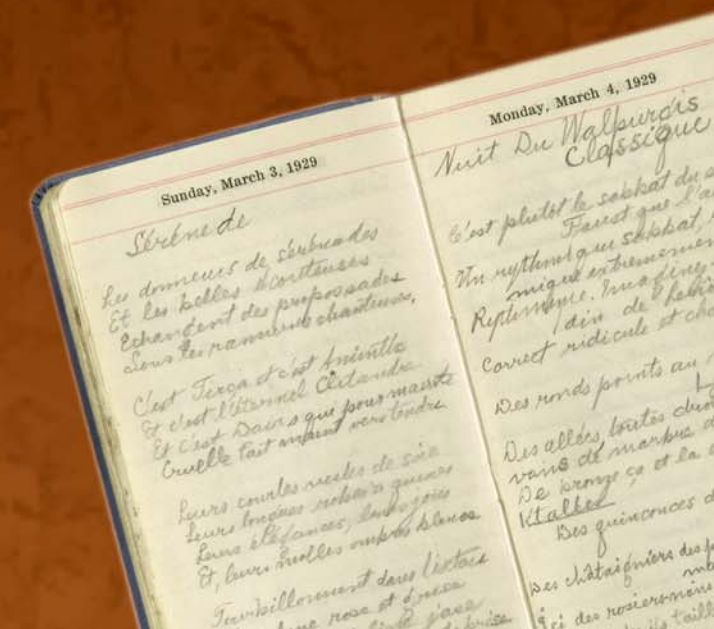 Sunday, March 3, 1929
Sérénede
Les donneurs de serénades
Et les belles écouteuses
Echangent des propos sades
Sous les ramures chanteuses,
C'est Tirça et c'est Aminthe
Et c'est l'éternel Clitandre
Et c'est Damis que pour mainte
Cruelle fait maint vers tendre
Leurs courtes vestes de soie
Leurs longues robes a queues
Leurs élégances, leurs joies
Et, leurs molles ombres bleues
Tourbillonnent dans l'extase
une rose et grise
jase
brise
Monday, March 4, 1929
Nuit Du Walpurgis
Classique
C'est plutôt le sabbat du s
Faust que l'a
Un rythmique sabbat,
mique extremement
Rythmique. Imaginez
din de
Correct ridicule et cha
Des ronds points au
Des allées toutes droi
vains de marbre d
De bronze ça et la
Etaller
Des quinconces d
Des châtaigniers des p
Ici des rosiers nains
taill